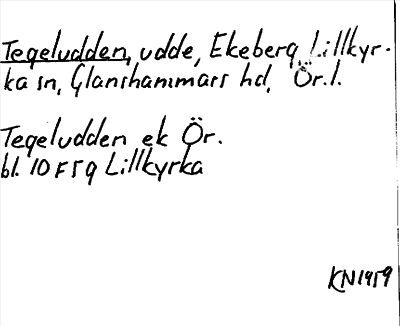 Tegeludden, udde, Ekeberg, Lillkyr-
ka sn, Glanshammars hd, Ör. l.
Tegeludden ek Ör.
bl. 10 F 5 g Lillkyrka
KN 1959